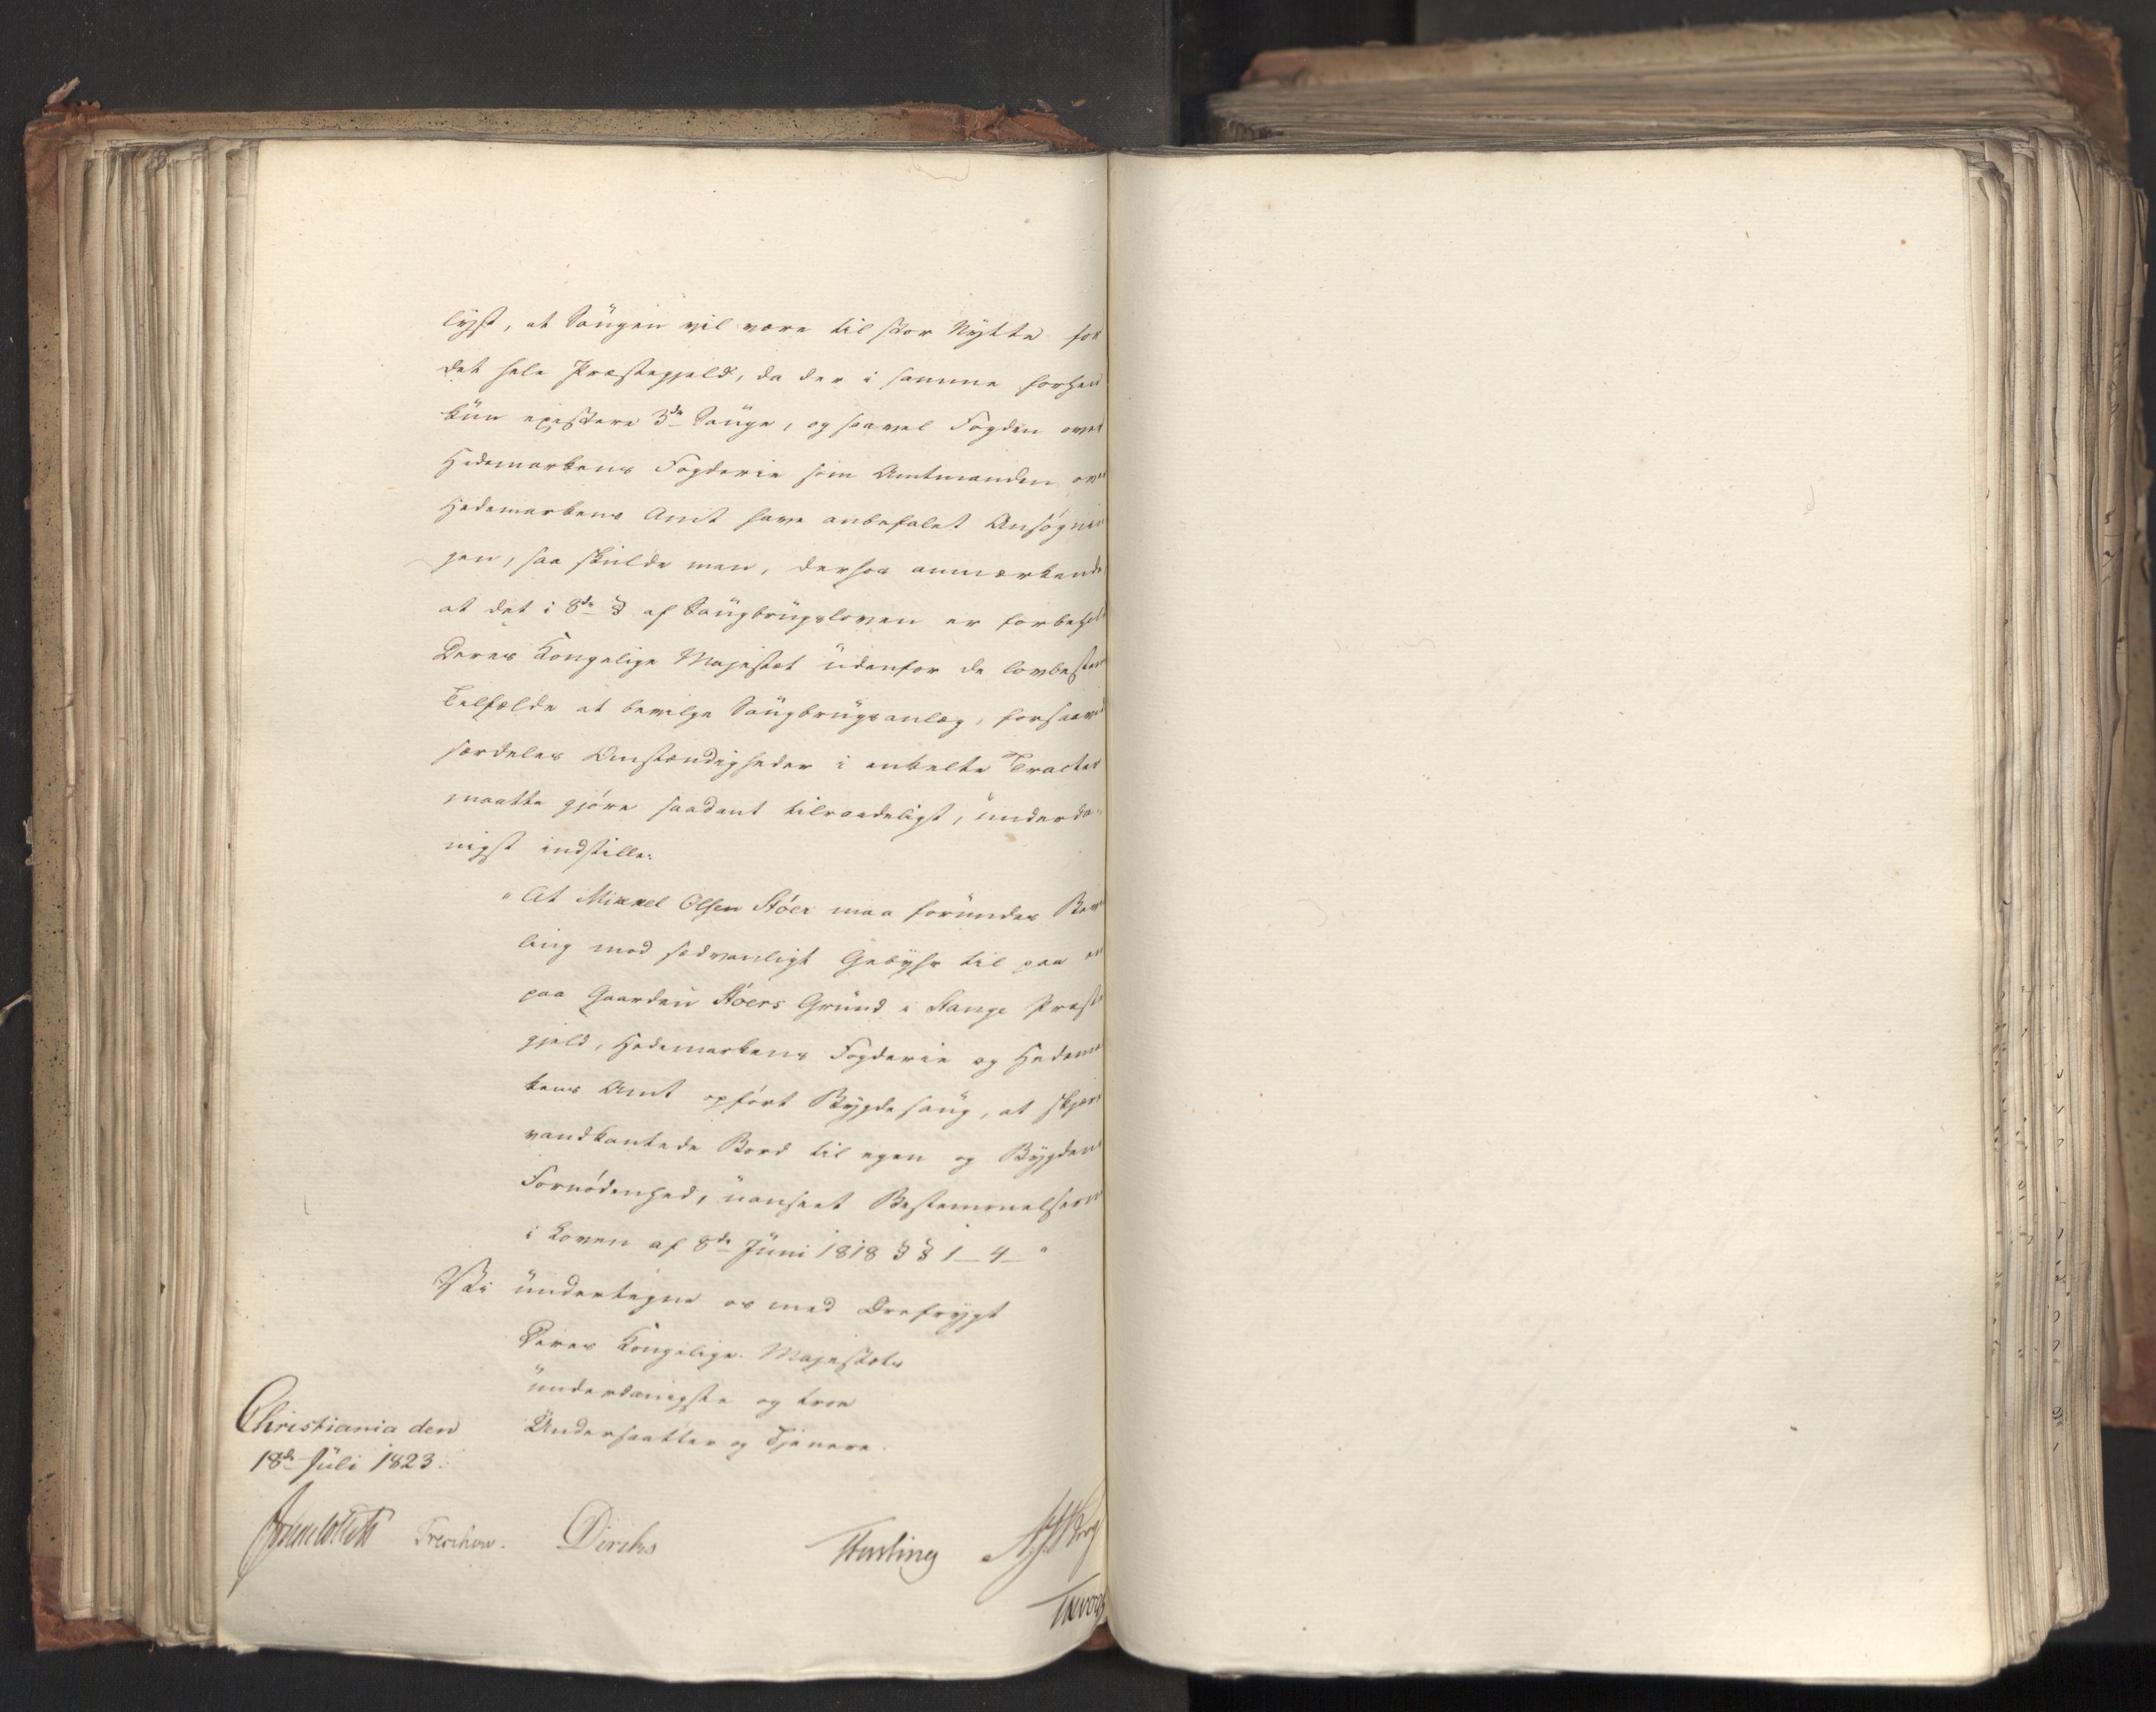 lyst, at Saugen vil være til stor Nytte for
det hele Præstegjeld, da der i samme forhen
kun existere 3de Sauge, og saavel Fogden over
Hedemarkens Fogderie som Amtmanden over
Hedemarkens Amt have anbefalet Ansøgnin
gen, saa skulde man, derhos anmærkende
at det i 8de § af Saugbrugsloven er forbeholdt
Deres Kongelige Majestæt udenfor de lovbestemte
Tilfælde at bevilge Saugbrugsanlæg, forsaavidt
særdeles Omstændigheder i enkelte Tracter
maatte gjøre saadant tilraadeligt, underda-
nigst indstille:
"At Mikkel Olsen Støer maa forundes Bevil
ling mod sædvanligt Gebyhr til paa en
paa Gaarden Støers Grund i Stange Præste
gjeld, Hedemarkens Fogderie og Hedemar
kens Amt opført Bygdesaug, at skjære
vandkantede Bord til egen og Bygdens
Fornødenhed, uanseet Bestemmelserne
i Loven af 8de Juni 1818 §§ 1 - 4 - "
Vi undertegne os med Ærefrygt
Deres Kongelige Majestæts
underdanigste og troe
Undersaatter og Tjenere.
Christiania den
18de Juli 1823.
Treschow. Diriks